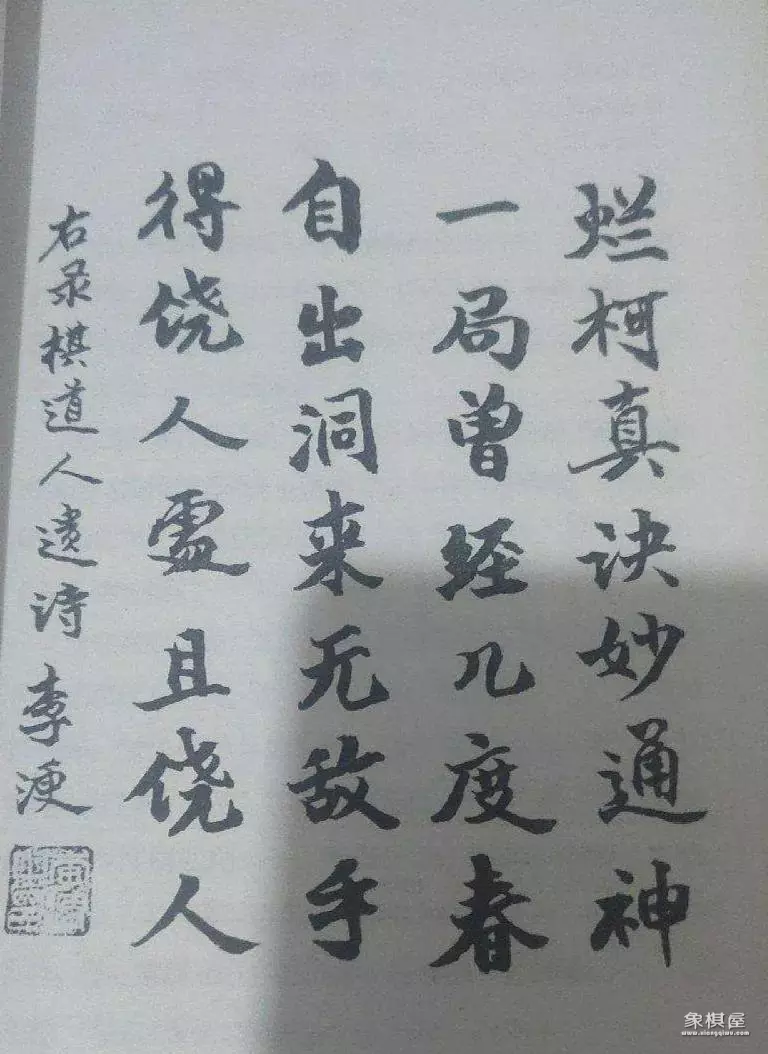 烂柯真诀妙通神
一局曾经几度春
自出洞来无敌手
得饶人处且饶人
右录棋道人遗诗 李浭
象棋屋
www.xiangqiwu.com